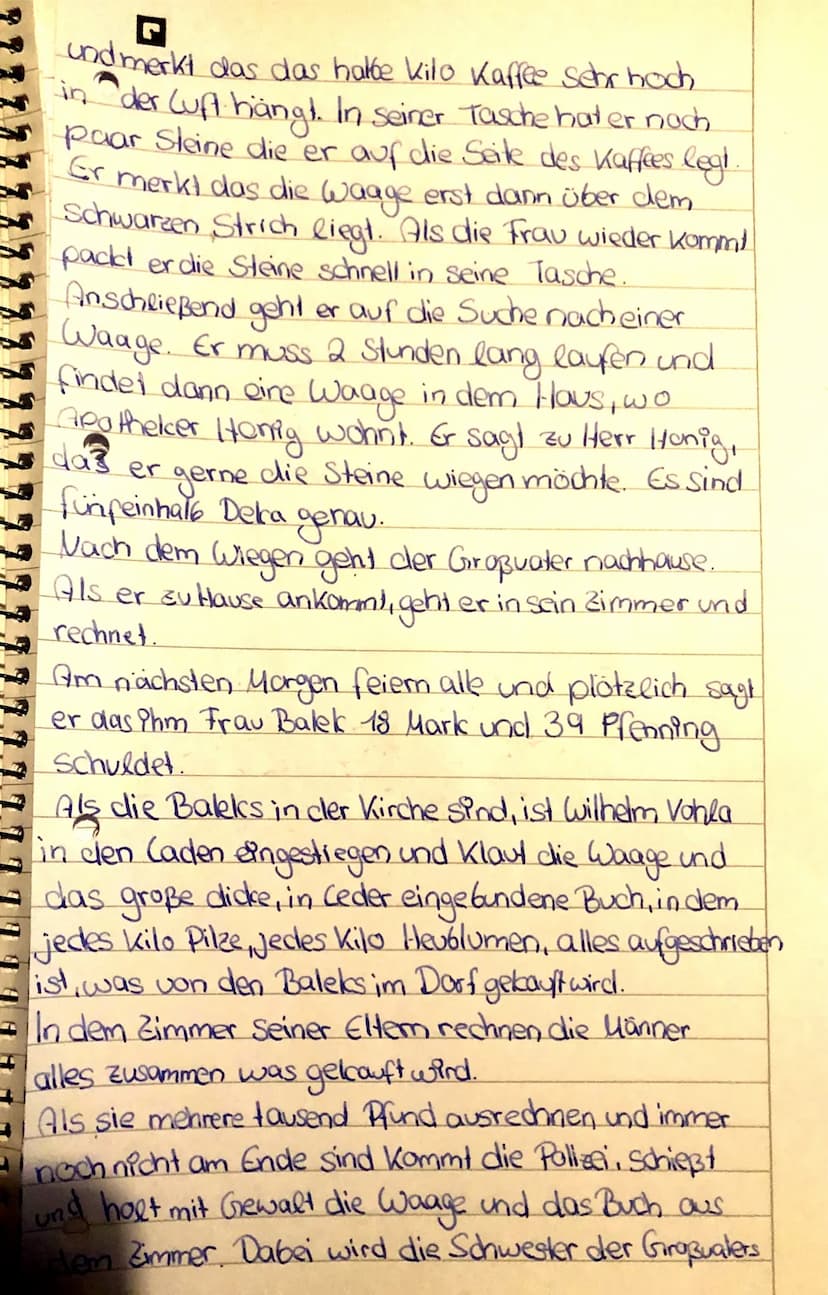 und merkt das das halbe Kilo Kaffee sehr hoch
in der Luft hängt. In seiner Tasche hat er noch
paar Steine die er auf die Seite des Kaffees legt.
Er merkt das die Waage erst dann über dem
schwarzen Strich liegt. Als die Frau wieder kommt
packt er die Steine schnell in seine Tasche.
Anschließend geht er auf die Suche nach einer
Waage. Er muss 2 Stunden lang laufen und
findet dann eine Waage in dem Haus, wo
Apotheker Honig wohnt. Er sagt zu Herr Honig,
das er gerne die Steine wiegen möchte. Es sind
fünfeinhalb Deka genau.
Nach dem Wiegen geht der Großvater nachhause.
Als er zu Hause ankommt, geht er in sein Zimmer und
rechnet.
Am nächsten Morgen feiern alle und plötzlich sagt
er das ihm Frau Balek 18 Mark und 39 Pfenning
schuldet.
Als die Baleks in der Kirche sind, ist Wilhelm Vohla
in den Laden eingestiegen und klaut die Waage und
das große dicke, in Leder eingebundene Buch, in dem
jedes Kilo Pilze, jedes Kilo Heublumen, alles aufgeschrieben
ist, was von den Baleks im Dorf gekauft wird.
In dem Zimmer seiner Eltern rechnen die Männer
alles zusammen was gekauft wird.
Als sie mehrere tausend Pfund ausrechnen und immer
noch nicht am Ende sind kommt die Polizei, schießt
und holt mit Gewalt die Waage und das Buch aus
dem Zimmer. Dabei wird die Schwester der Großvaters